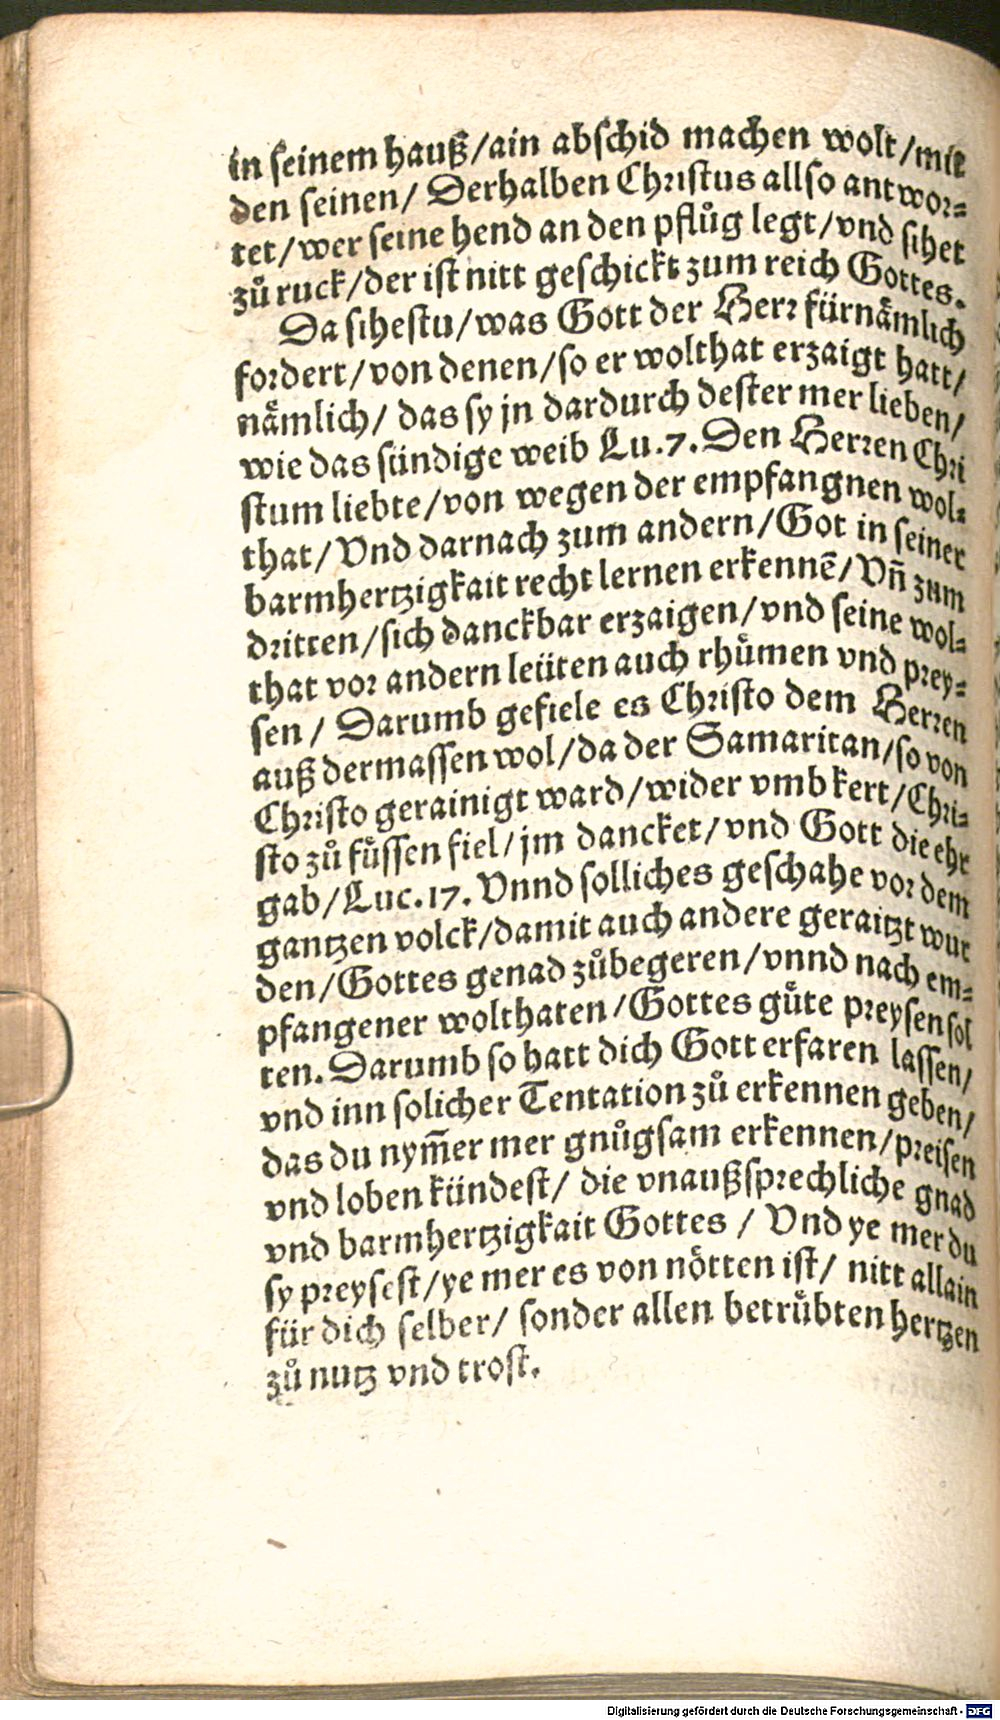 in seinem hauß/ain abschid machen wolt/mit
den seinen/ Derhalben Christus allso antwor⸗
tet/wer seine hend an den pflůg legt/vnd sihet
zů ruck/der ist nitt geschickt zum reich Gottes.
Da sihestu/was Gott der Herr fürnämlich
fordert/von denen/so er wolthat erzaigt hatt/
nämlich/ das sy jn dardurch dester mer lieben/
wie das sündige weib Lu.7. Den Herren Chri
stum liebte/von wegen der empfangnen wol⸗
that/Vnd darnach zum andern/Got in seiner
barmhertzigkait recht lernen erkennē/Vn̄ zum
dritten/sich danckbar erzaigen/vnd seine wol⸗
that vor andern leüten auch rhůmen vnd prey⸗
sen / Darumb gefiele es Christo dem Herren
auß dermassen wol/da der Samaritan/so von
Christo gerainigt ward/wider vmb kert/Chri⸗
sto zů fůssen fiel/jm dancket/vnd Gott die ehr
gab/Luc.17. Vnnd solliches geschahe vor dem
gantzen volck/damit auch andere geraitzt wur
den/Gottes genad zůbegeren/vnnd nach em⸗
pfangener wolthaten/Gottes gůte preysen sol
ten. Darumb so hatt dich Gott erfaren lassen/
vnd inn solicher Tentation zů erkennen geben/
das du nym̄er mer gnůgsam erkennen/preisen
vnd loben kündest/ die vnaußsprechliche gnad
vnd barmhertzigkait Gottes / Vnd ye mer du
sy preysest/ye mer es von nötten ist/ nitt allain
für dich selber/ sonder allen betrůbten hertzen
zů nutz vnd trost.
Digitalisierung gefördert durch die Deutsche Forschungsgemeinschaft - DFG